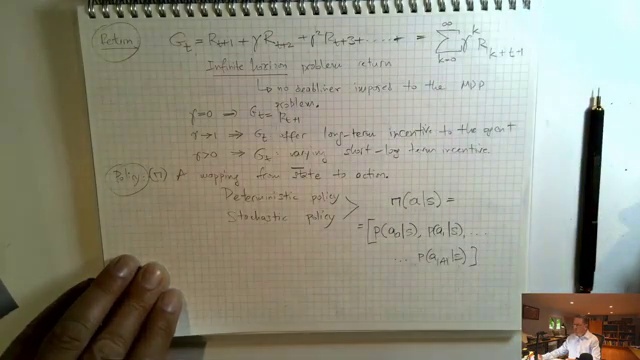 Return G_t = R_{t+1} + γ R_{t+2} + γ² R_{t+3} + ..... + = ∑_{k=0}^{∞} γ^k R_{k+t+1}
Infinite horizon problem return
↳ no deadline imposed to the MDP
problem.
γ=0 ⟹ G_t = R_{t+1}
γ→1 ⟹ G_t offer long-term incentive to the agent
γ>0 ⟹ G_t: varying short-log term incentive.
Policy (π) A mapping from state to action.
Deterministic policy
Stochastic policy
π(a|s) =
= [p(a_0|s), p(a_1|s), ...
... p(a_{|A|}|s)]